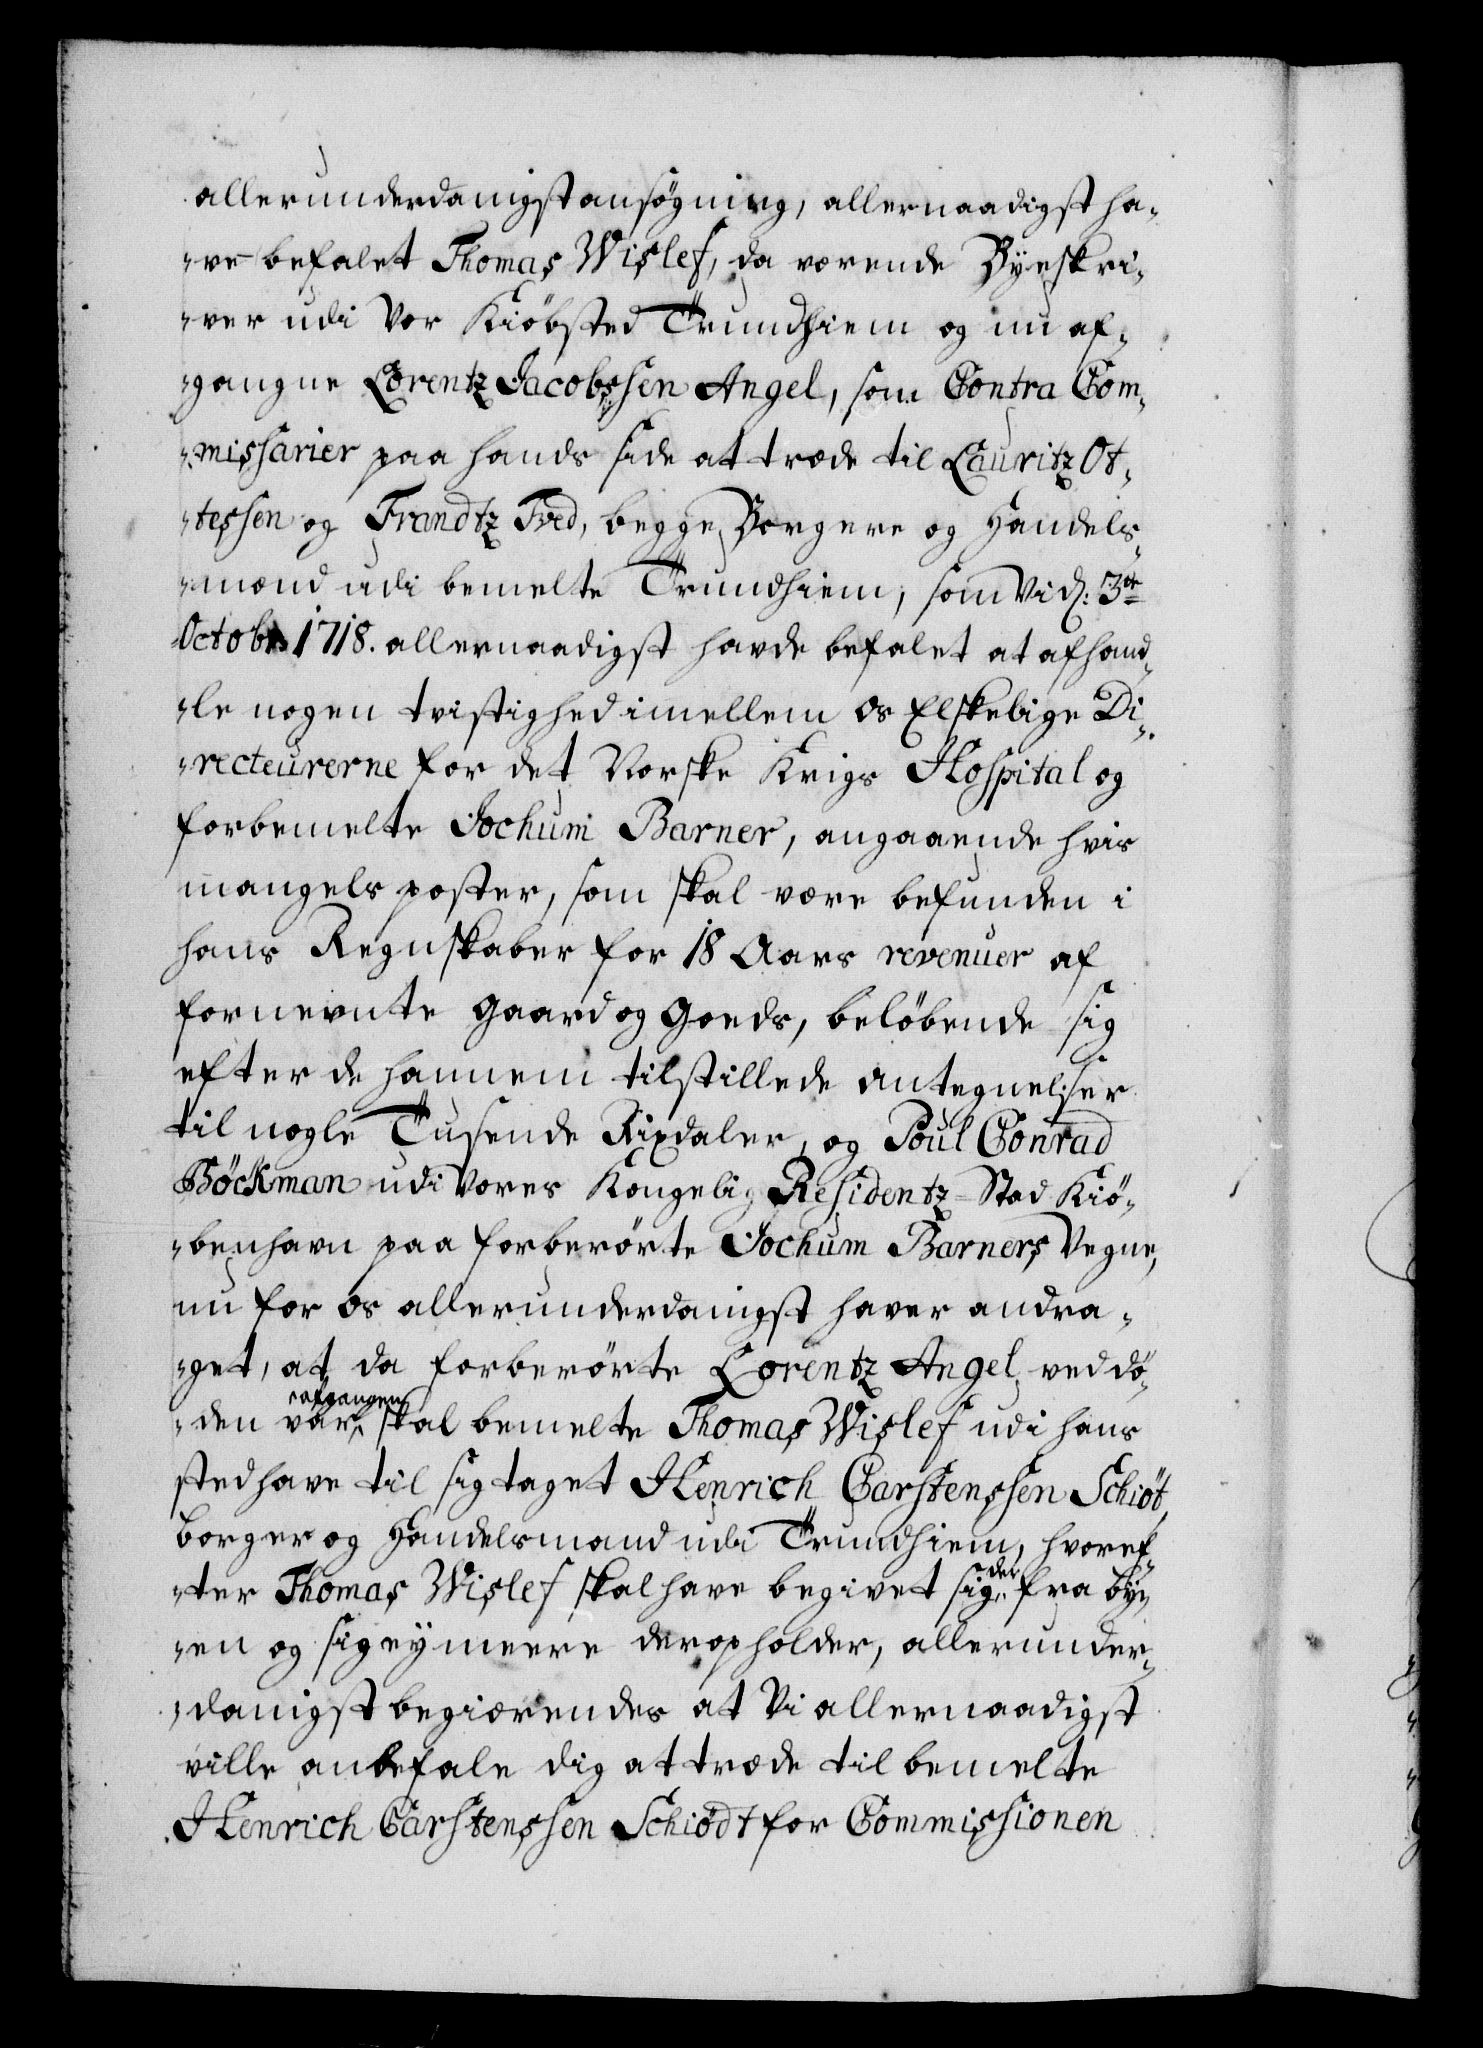 allerunderdanigst ansøgning, allernaadigst ha-
-ve befalet Thomas Wislef, da værende Byeskri-
-ver udi Vor Kiöbsted Trundhiem og nu af-
-gangne Lorentz Jacobssen Angel, som Contra Com-
-missarier paa hands side at træde til Lauritz Ot-
-tessen og Frandtz Tved, begge Borgere og Handels-
-mænd udi bemelte Trundhiem, som Vi d: 3de
Octobr 1718. allernaadigst havde befalet at afhand-
-le nogen tvistighed imellem os Elskelige Di-
-recteurerne for det Norske Krigs Hospital og
forbemelte Jochum Barner, angaaende hvis
mangels poster, som skal være befunden i
hans Regnskaber for 18 Aars revenuer af
fornevnte gaard og goeds, belöbende sig
efter de hannem tilstillede Antegnelser
til nogle Tusende Rixdaler, og Poul Conrad
Böckman udi Vores Kongelig Residentz-Stad Kiö-
-benhavn paa forberörte Jochum Barners Vegne,
nu for os allerunderdanigst haver andra-
-get, at da forberörte Lorentz Angel ved dö-
-den var afgangen skal bemelte Thomas Wislef udi hans
sted have til sig taget Henrich Carstenssen Schiöt,
borger og Handelsmand udi Trundhiem, hvoref-
-ter Thomas Wislef skal have begivet sig der fra bÿ-
-en og sig eÿ meere der opholder, allerunder-
-danigst begiærendes at Vi allernaadigst
ville anbefale dig at træde til bemelte
Henrich Carstenssen Schiödt for Commissionen